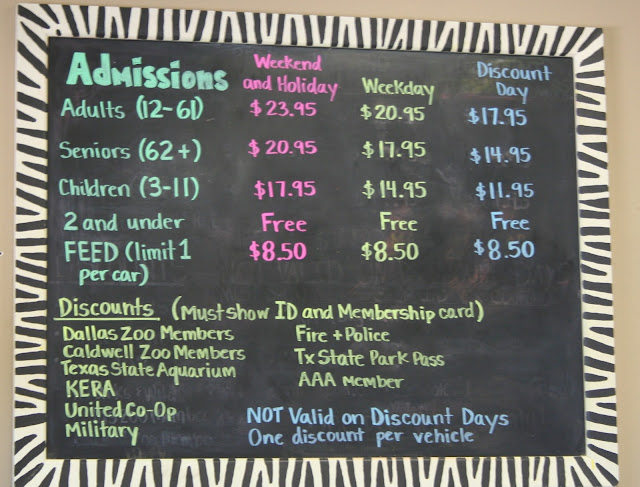 Admissions Weekend and Holiday Weekday Discount Day
Adults (12-61) $23.95 $20.95 $17.95
Seniors (62+) $20.95 $17.95 $14.95
Children (3-11) $17.95 $14.95 $11.95
2 and under Free Free Free
FEED (limit 1 per car) $8.50 $8.50 $8.50
Discounts (Must show ID and Membership card)
Dallas Zoo Members
Caldwell Zoo Members
Texas State Aquarium
KERA
United Co-Op
Military
Fire + Police
Tx State Park Pass
AAA Member
NOT Valid on Discount Days
One discount per vehicle